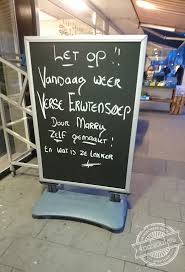 LET OP !!
VANDAAG WEER
VERSE ERWTENSOEP
DOOR MARRY
ZELF gemaakt!
EN WAT IS ZE LEKKER